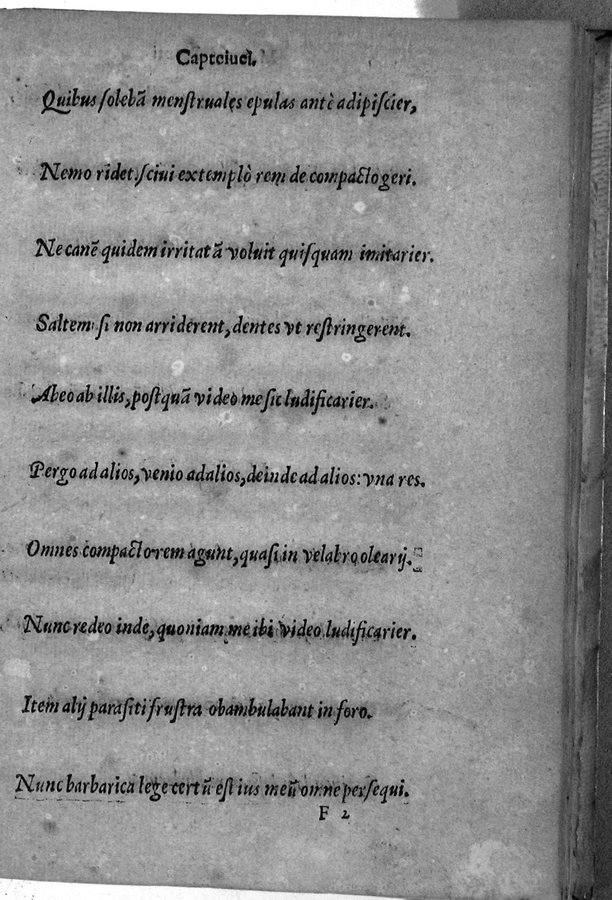 Capteiuei.
Quibus ſolebã menſtruales epulas antè adipiſcier,
Nemo ridet. ſciui extemplò rem de compacto geri.
Ne canẽ quidem irritatã voluit quiſquam imitarier.
Saltem ſi non arriderent, dentes vt reſtringerent.
Abeo ab illis, poſtquã video me ſic ludificarier.
Pergo ad alios, venio ad alios, deinde ad alios: vna res.
Omnes compacto rem agunt, quaſi in velabro olearij.
Nunc redeo inde, quoniam me ibi video ludificarier.
Item alij paraſiti fruſtra obambulabant in foro.
Nunc barbarica lege certũ eſt ius meũ omne perſequi.
F 2